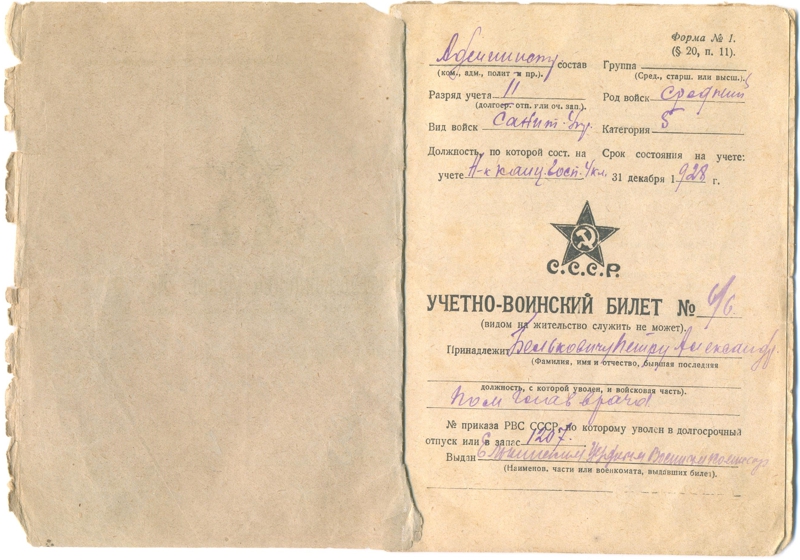 Форма № 1.
(§ 20, п. 11).
Админист состав Группа
(ком., адм., полит и пр.). (Сред., старш. или высш.)
Разряд учета 11 Род войск средний
(долгоср. отп. или оч. зап.).
Вид войск Санит. Категория 5
Должность, по которой сост. на Срок состояния на учете:
учете Н-к канц. госп. 31 декабря 1928 г.
С.С.С.Р.
УЧЕТНО-ВОИНСКИЙ БИЛЕТ №
(видом на жительство служить не может).
Принадлежит Бельковичу Петру Александр.
(Фамилия, имя и отчество, бывшая последняя
должность, с которой уволен, и войсковая часть).
пом глав врача
№ приказа РВС СССР, по которому уволен в долгосрочный
отпуск или в запас 1207.
Выдан Уездным Военным комиссар
(Наименов, части или военкомата, выдавших билет).